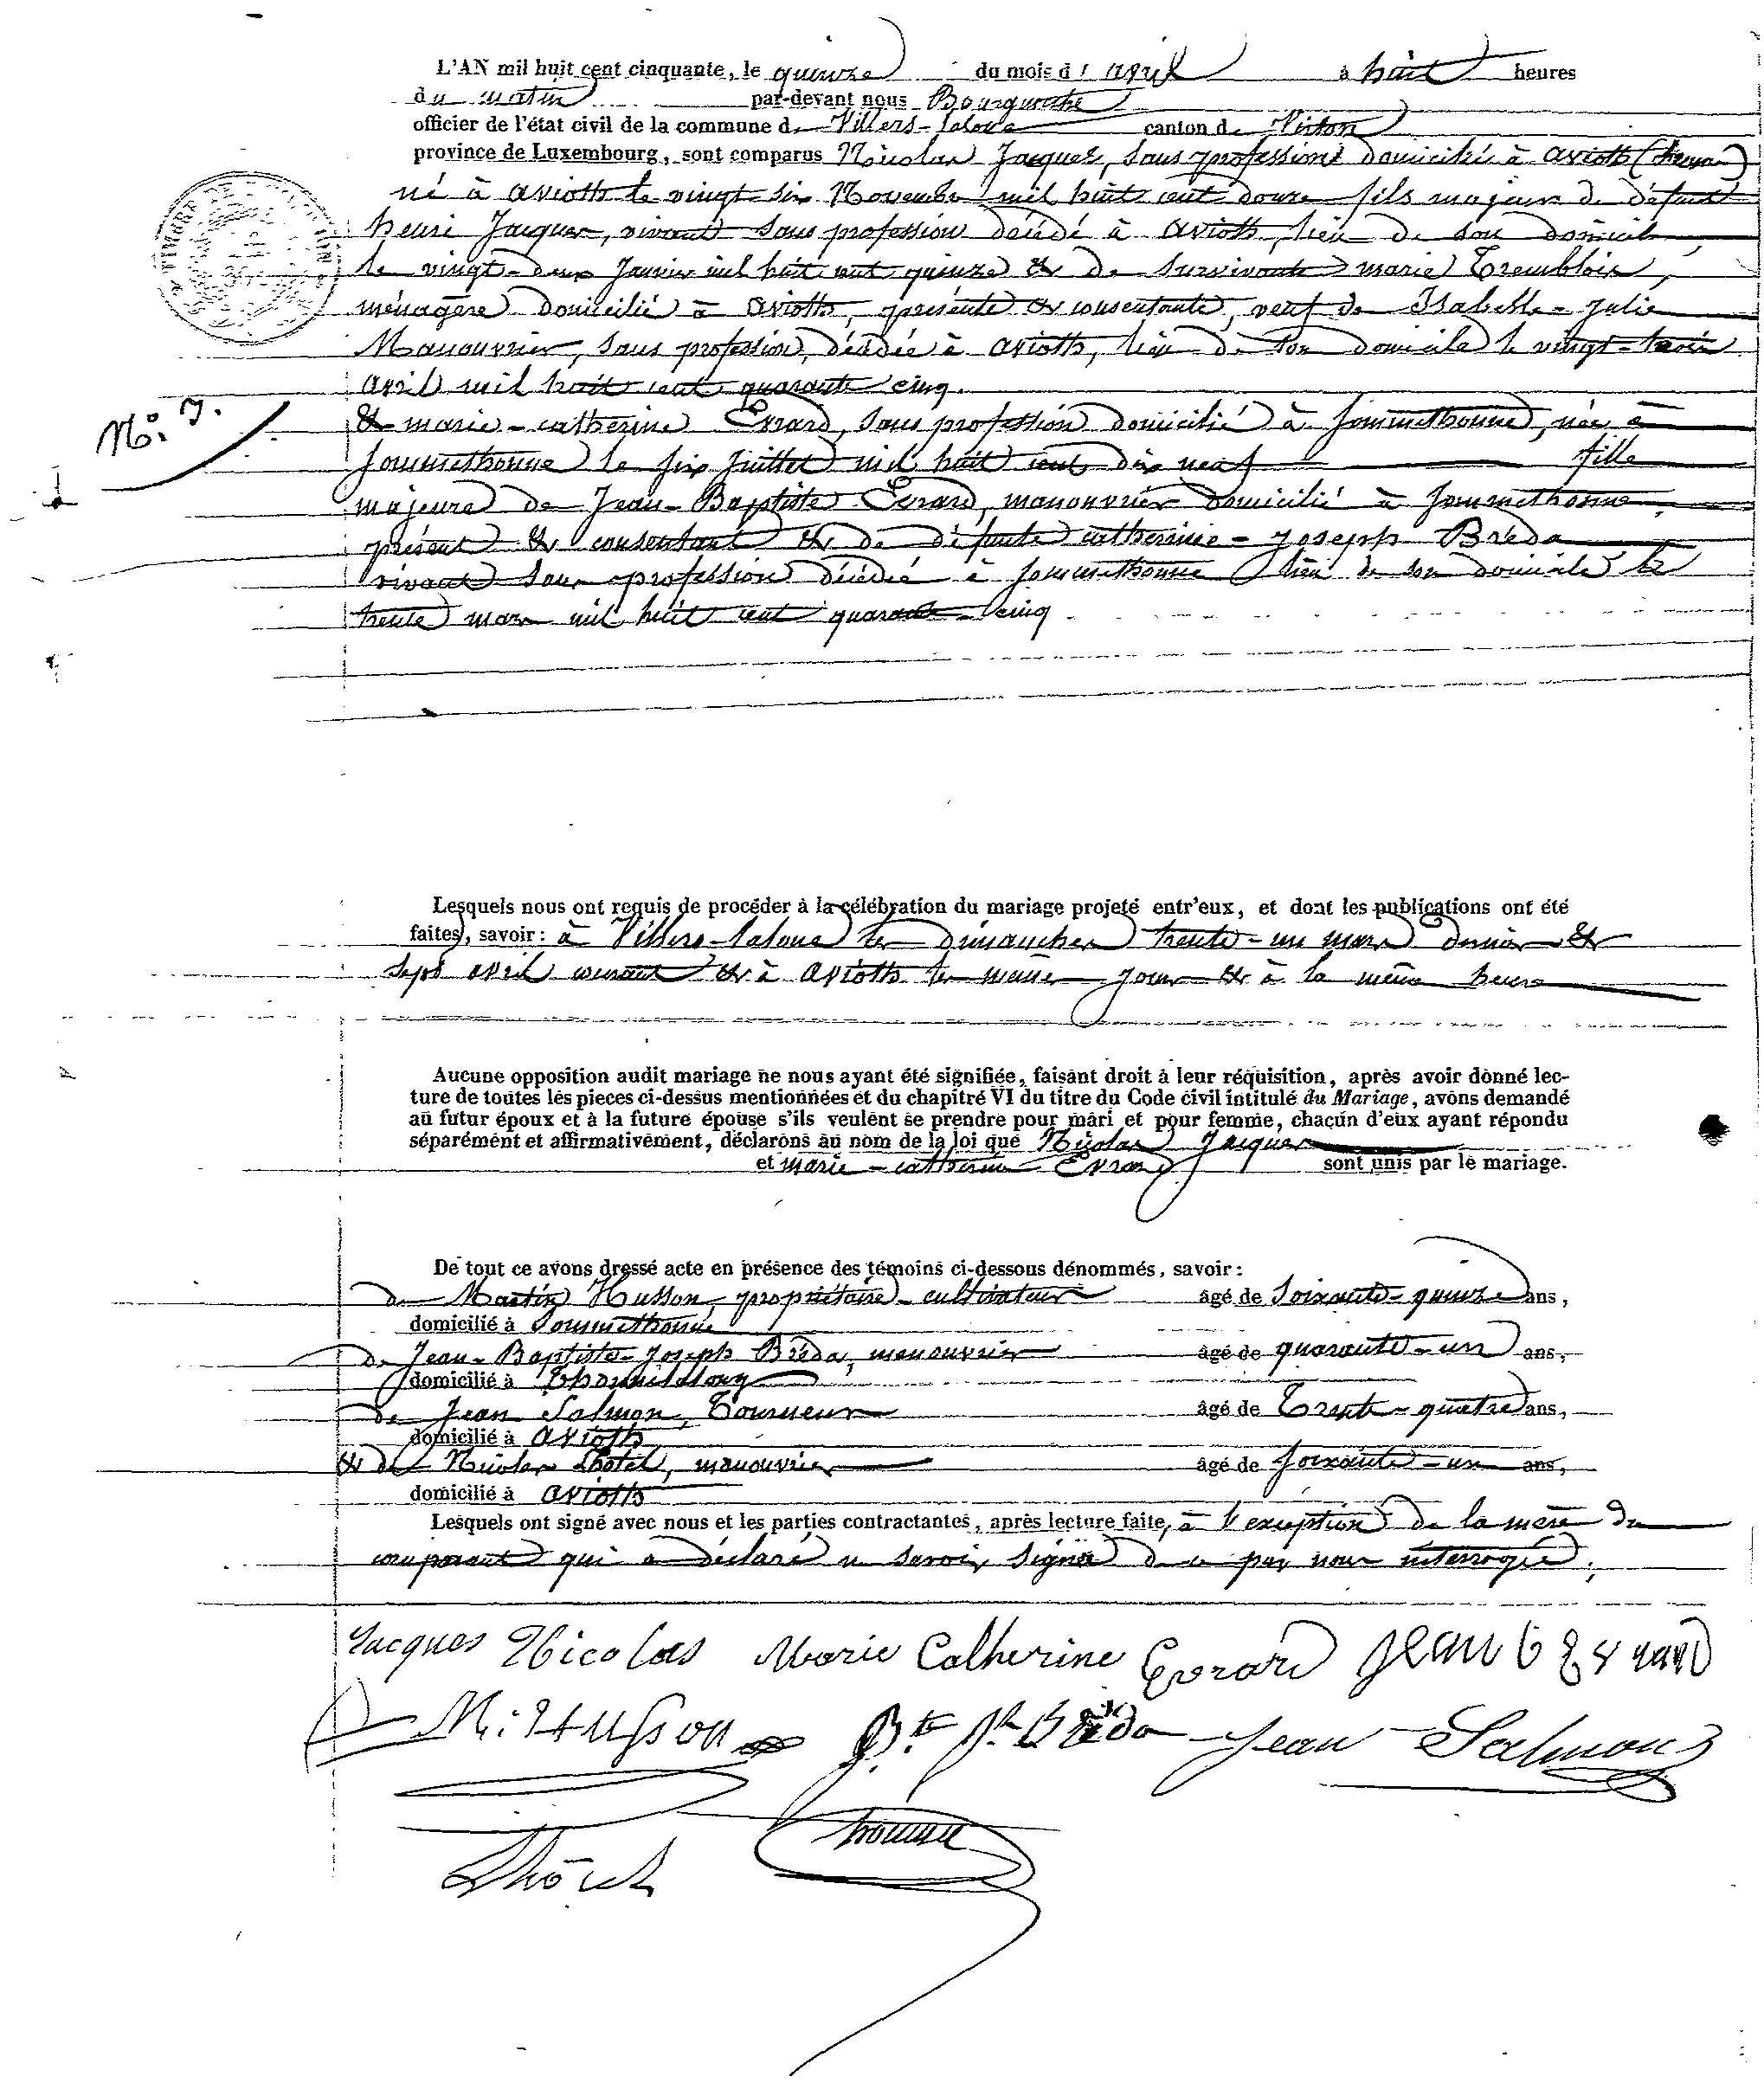 L'AN mil huit cent cinquante, le quinze du mois d'avril à huit heures
du matin par-devant nous
officier de l'état civil de la commune de Villers-laloue canton de Virton
province de Luxembourg, sont comparus Nicolas Jacques, sans profession domicilié à avioth (france)
né à avioth le vingt six Novembre mil huit cent douze fils majeur de défunt
henri Jacques, vivant sans profession décédé à avioth, lieu de son domicile
le vingt-deux Janvier mil huit cent quinze & de survivante marie Tremblois,
ménagère domicilié à avioth, présente & consentante, veuf de Isabelle-Julie
Manouvrier, sans profession, décédée à avioth, lieu de son domicile le vingt-trois
avril mil huit cent quarante cinq.
N.° 7.
& marie-catherine Evrard, sans profession domicilié à Sommethonne, née à
Sommethonne le six Juillet mil huit cent dix neuf fille
majeure de Jean-Baptiste Evrard, manouvrier domicilié à Sommethonne
présent & consentant & de défunte catherine-Joseph Bréda
vivant sans profession décédée à Sommethonne lieu de son domicile le
trente mars mil huit cent quarante-cinq
Lesquels nous ont requis de procéder à la célébration du mariage projeté entr'eux, et dont les publications ont été
faites, savoir : à Villers-laloue les dimanches trente-un mars dernier &
sept avril courant & à avioth les mêmes jours & à la même heure
Aucune opposition audit mariage ne nous ayant été signifiée, faisant droit à leur réquisition, après avoir donné lec-
ture de toutes les pieces ci-dessus mentionnées et du chapitre VI du titre du Code civil intitulé du Mariage, avons demandé
au futur époux et à la future épouse s'ils veulent se prendre pour mari et pour femme, chacun d'eux ayant répondu
séparément et affirmativement, déclarons au nom de la loi que Nicolas Jacques
et marie-catherine Evrard sont unis par le mariage.
De tout ce avons dressé acte en présence des témoins ci-dessous dénommés, savoir :
de Martin Husson, propriétaire-cultivateur âgé de soixante-quinze ans,
domicilié à Sommethonne
de Jean-Baptiste-Joseph Bréda, manouvrier âgé de quarante-un ans,
domicilié à Thonnelalong
de Jean Salmon, Tourneur âgé de Trente-quatre ans,
domicilié à avioth
& de Nicolas Lhotel, manouvrier âgé de soixante-un ans,
domicilié à avioth
Lesquels ont signé avec nous et les parties contractantes, après lecture faite, à l'exception de la mère du
comparant qui a déclaré ne savoir signer de ce par nous interrogée.
Jacques Nicolas Marie Catherine Evrard Jean b Evrard
M. Husson Bte Jh Bréda Jean Salmon